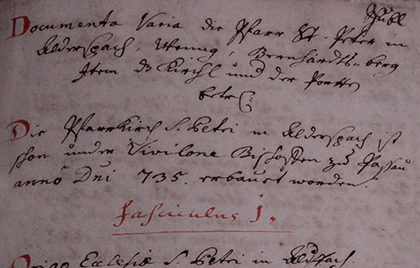 Documenta Varia die Pfarr St. Peter in
Alderspach. Wening, Bernhardtsberg
Item ds Kirchl und der Portten
betrf:
Die Pfarrkirch S. Petri in Alderspach ist
schon under Vivilone Bischoffen zu Passau
anno Dni 735. erbauet worden.
Fasciculus 1.
Ecclesiæ S. Petri in Aldspach.